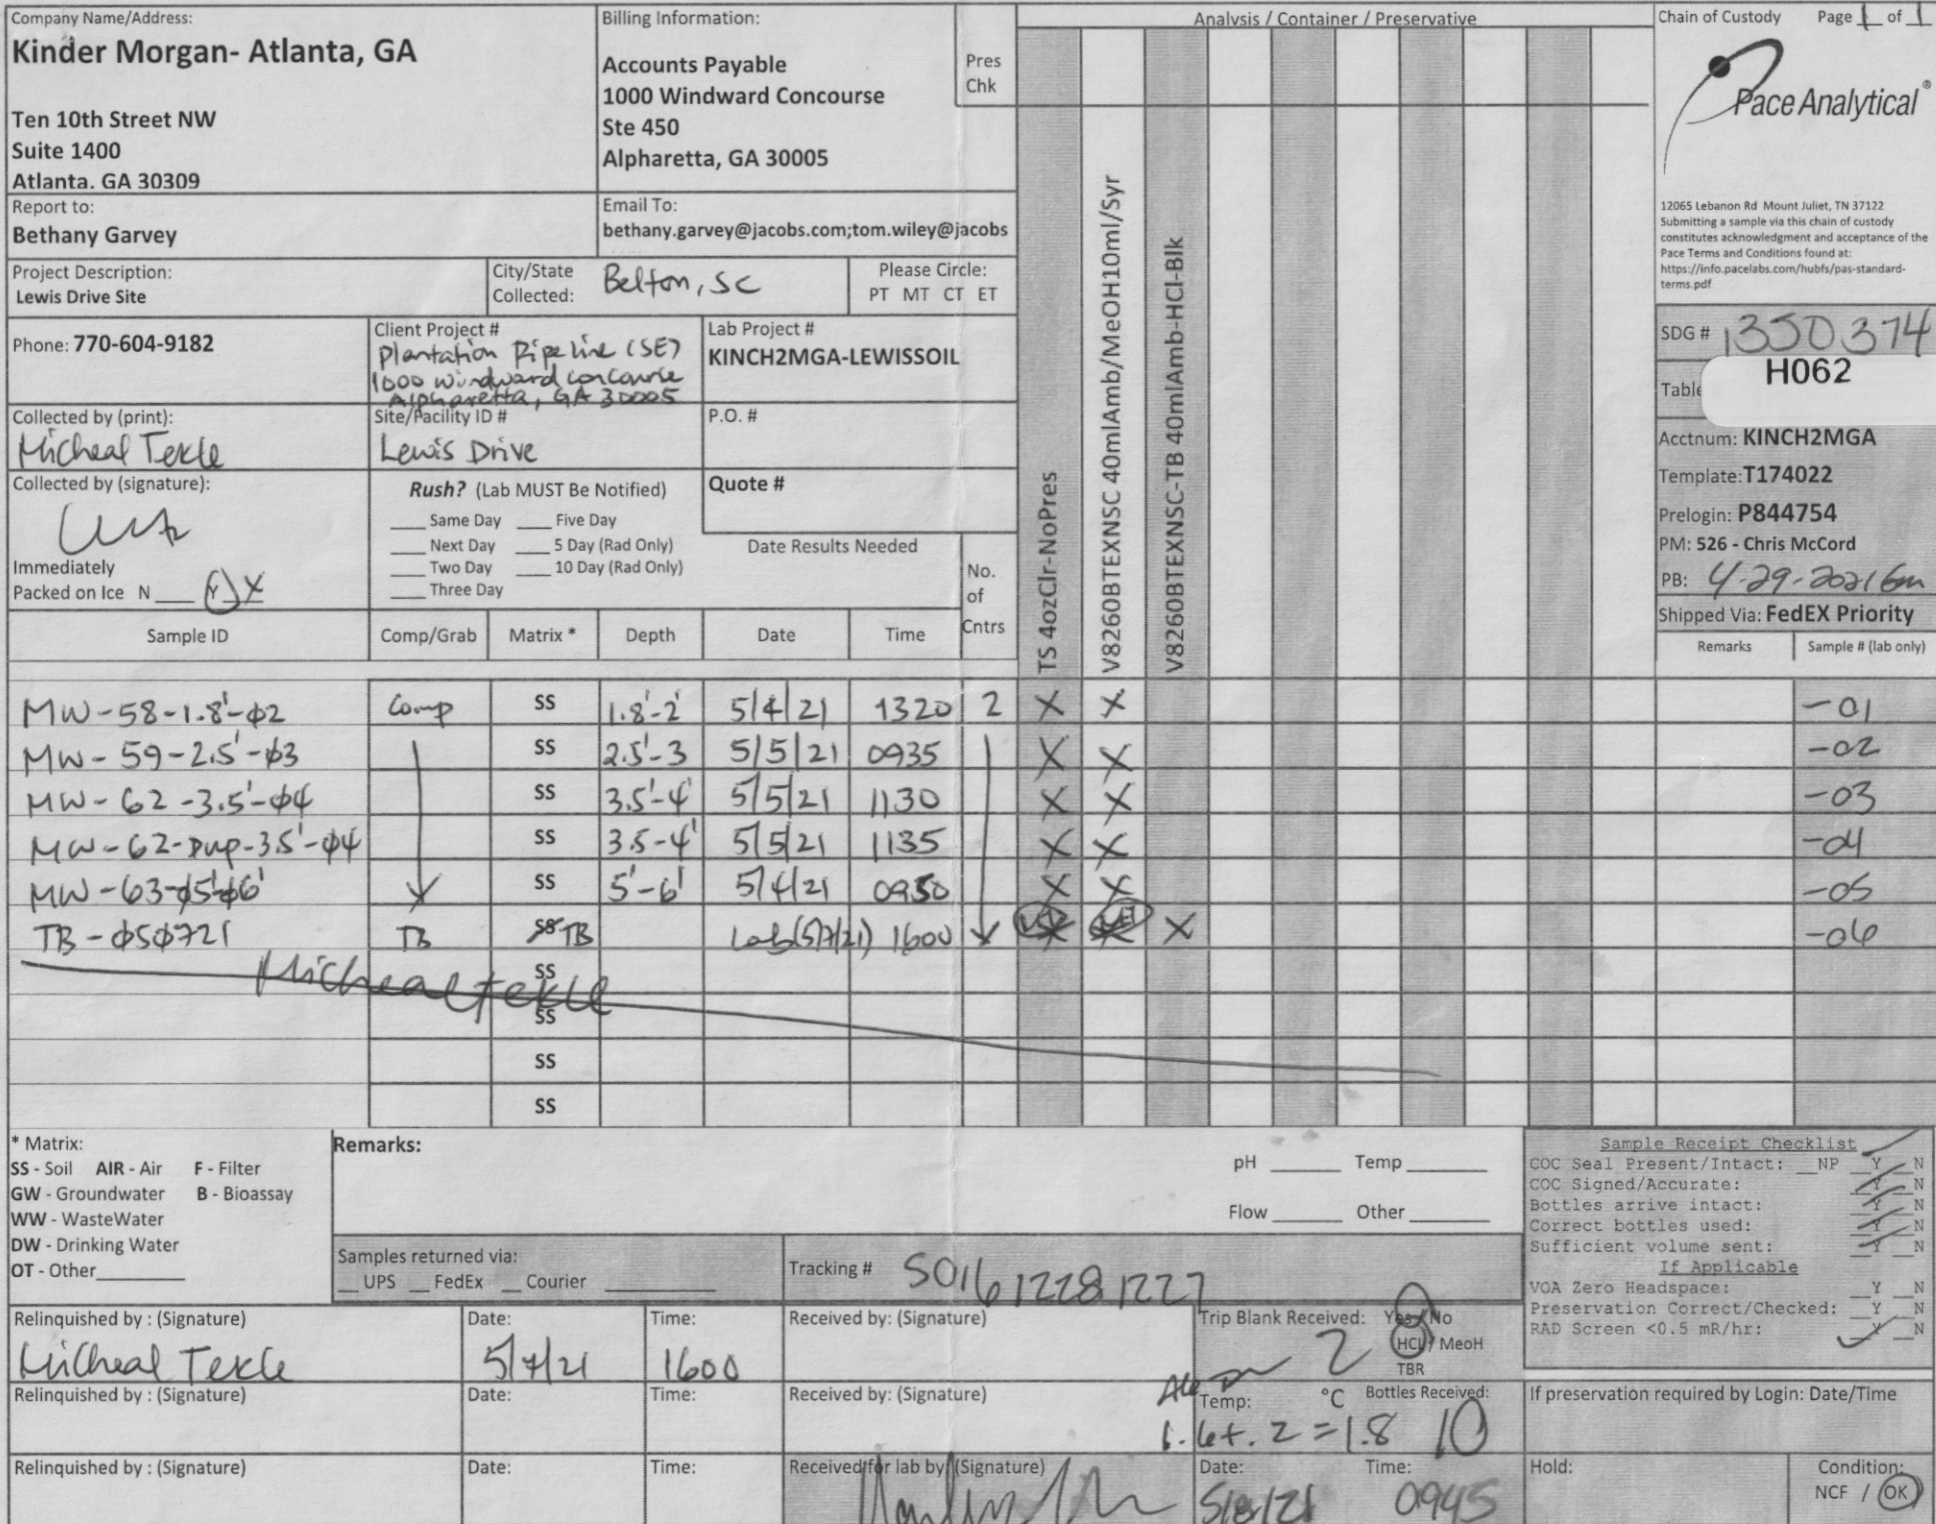 Company Name/Address:
Kinder Morgan- Atlanta, GA
Ten 10th Street NW
Suite 1400
Atlanta. GA 30309
Billing Information:
Accounts Payable
1000 Windward Concourse
Ste 450
Alpharetta, GA 30005
Pres
Chk
Analysis / Container / Preservative
Chain of Custody Page 1 of 1
Pace Analytical®
12065 Lebanon Rd Mount Juliet, TN 37122
Submitting a sample via this chain of custody
constitutes acknowledgment and acceptance of the
Pace Terms and Conditions found at:
https://info.pacelabs.com/hubfs/pas-standard-
terms.pdf
Report to:
Bethany Garvey
Email To:
bethany.garvey@jacobs.com;tom.wiley@jacobs
Project Description:
Lewis Drive Site
City/State
Collected: Belton, SC
Please Circle:
PT MT CT ET
Phone: 770-604-9182
Client Project #
Plantation Pipeline (SE)
1000 windward concourse
Alpharetta, GA 30005
Lab Project #
KINCH2MGA-LEWISSOIL
Collected by (print):
Micheal Tekle
Site/Facility ID #
Lewis Drive
P.O. #
Collected by (signature):
Immediately
Packed on Ice N ___ Y X
Rush? (Lab MUST Be Notified)
___ Same Day ___ Five Day
___ Next Day ___ 5 Day (Rad Only)
___ Two Day ___ 10 Day (Rad Only)
___ Three Day
Quote #
Date Results Needed
No.
of
Cntrs
TS 4ozClr-NoPres
V8260BTEXNSC 40mlAmb/MeOH10ml/Syr
V8260BTEXNSC-TB 40mlAmb-HCl-Blk
SDG # 1350374
Table
H062
Acctnum: KINCH2MGA
Template: T174022
Prelogin: P844754
PM: 526 - Chris McCord
PB: 4-29-2021
Shipped Via: FedEX Priority
Sample ID Comp/Grab Matrix * Depth Date Time Remarks Sample # (lab only)
MW-58-1.8'-φ2 Comp SS 1.8'-2' 5/4/21 1320 2 X X -01
MW-59-2.5'-φ3 SS 2.5'-3 5/5/21 0935 X X -02
MW-62-3.5'-φ4 SS 3.5'-4' 5/5/21 1130 X X -03
MW-62-Dup-3.5'-φ4 SS 3.5-4' 5/5/21 1135 X X -04
MW-63-φ5'-φ6' SS 5'-6' 5/4/21 0950 X X -05
TB-φ5φ721 TB SS TB Lab(5/7/21) 1600 X -06
Micheal Tekle SS
SS
SS
SS
* Matrix:
SS - Soil AIR - Air F - Filter
GW - Groundwater B - Bioassay
WW - WasteWater
DW - Drinking Water
OT - Other
Remarks:
pH ___ Temp ___
Flow ___ Other ___
Samples returned via:
__ UPS __ FedEx __ Courier
Tracking # 501612281227
Sample Receipt Checklist
COC Seal Present/Intact: __NP __Y __N
COC Signed/Accurate: __Y __N
Bottles arrive intact: __Y __N
Correct bottles used: __Y __N
Sufficient volume sent: __Y __N
If Applicable
VOA Zero Headspace: __Y __N
Preservation Correct/Checked: __Y __N
RAD Screen <0.5 mR/hr: __Y __N
Relinquished by : (Signature)
Micheal Tekle
Date:
5/7/21
Time:
1600
Received by: (Signature)
Trip Blank Received: Yes / No
2 HCL / MeoH
TBR
Relinquished by : (Signature)
Date:
Time:
Received by: (Signature)
Temp: °C Bottles Received:
1.6+.2=1.8 10
If preservation required by Login: Date/Time
Relinquished by : (Signature)
Date:
Time:
Received for lab by: (Signature)
Date:
5/8/21
Time:
0945
Hold:
Condition:
NCF / OK